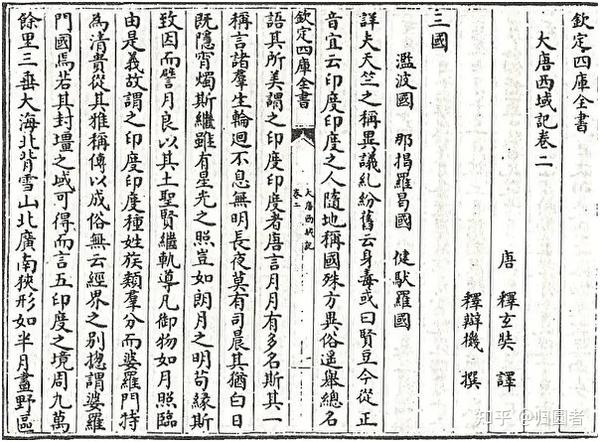 欽定四庫全書
大唐西域記卷二
唐 釋玄奘 譯
釋辯機 撰
三國
濫波國 那揭羅曷國 健馱羅國
詳夫天竺之稱異議糺紛舊云身毒或曰賢豆今從正
音宜云印度印度之人隨地稱國殊方異俗遥舉總名
語其所美謂之印度印度者唐言月月有多名斯其一
欽定四庫全書
大唐西域記
卷二
一
稱言諸羣生輪迴不息無明長夜莫有司晨其猶白日
既隱宵燭斯繼雖有星光之照豈如朗月之明苟緣斯
致因而譬月良以其土聖賢繼軌導凡御物如月照臨
由是義故謂之印度印度種姓族類羣分而婆羅門特
為清貴從其雅稱傳以成俗無云經界之別摠謂婆羅
門國焉若其封壃之域可得而言五印度之境周九萬
餘里三垂大海北背雪山北廣南狹形如半月畫野區
知乎 @归圆者